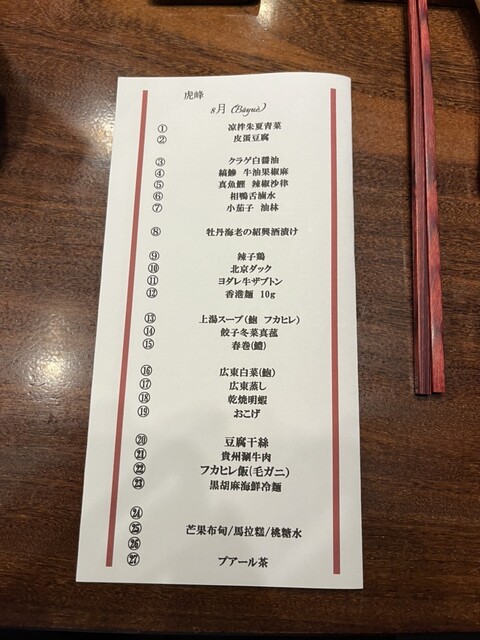 虎峰
8月 (Bāyuè)
① 凉拌朱夏青菜
② 皮蛋豆腐
③ クラゲ白醤油
④ 縞鯵 牛油果椒麻
⑤ 真魚鰹 辣椒沙律
⑥ 相鴨舌滷水
⑦ 小茄子 油林
⑧ 牡丹海老の紹興酒漬け
⑨ 辣子鶏
⑩ 北京ダック
⑪ ヨダレ牛ザブトン
⑫ 香港麺 10g
⑬ 上湯スープ(鮑 フカヒレ)
⑭ 餃子冬菜真菰
⑮ 春巻(鱧)
⑯ 広東白菜(鮑)
⑰ 広東蒸し
⑱ 乾焼明蝦
⑲ おこげ
⑳ 豆腐干絲
㉑ 貴州涮牛肉
㉒ フカヒレ飯(毛ガニ)
㉓ 黒胡麻海鮮冷麺
㉔
㉕ 芒果布甸/馬拉糕/桃糖水
㉖
㉗ プアール茶